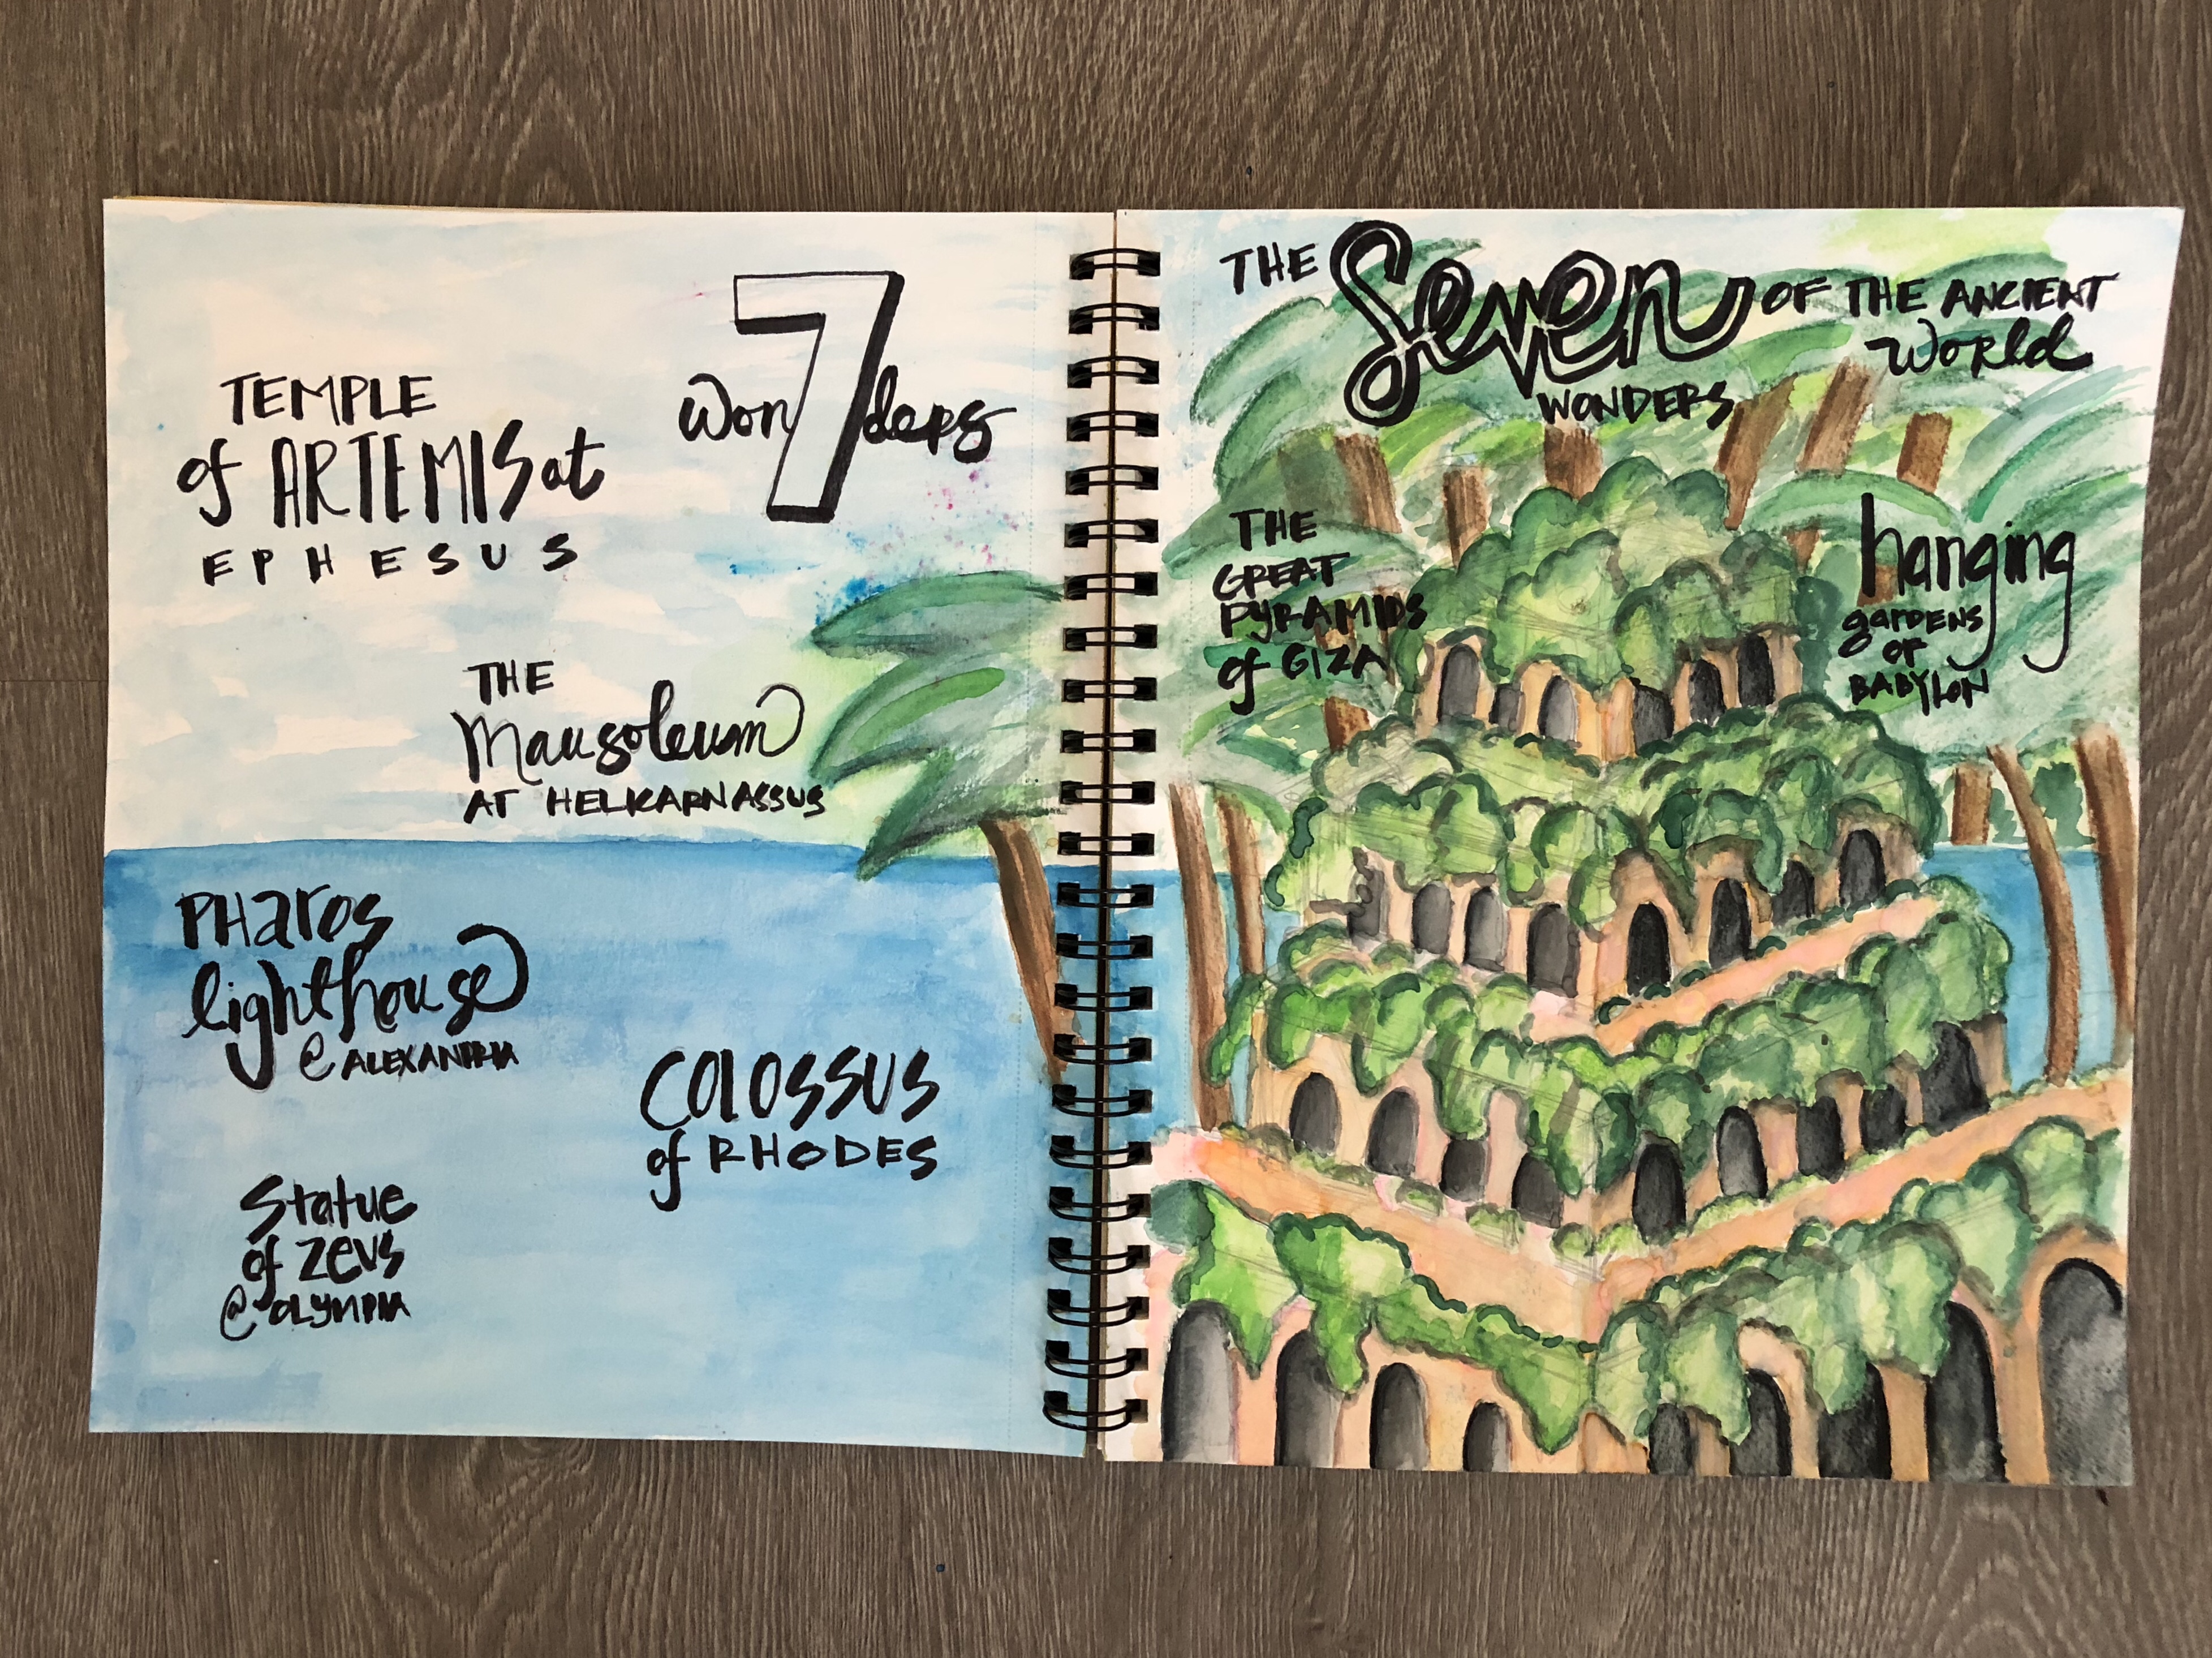 won7ders
TEMPLE
of ARTEMIS at
EPHESUS
THE
Mausoleum
AT HELKARNASSUS
PHaros
lighthouse
@ ALEXANDRIA
COlOSSUS
of RHODES
Statue
of Zeus
@ OLYMPIA
THE Seven OF THE ANCIENT
WONDERS World
THE
GREAT
PYRAMIDS
of GIZA
hanging
garDENS
OF
BABYlON